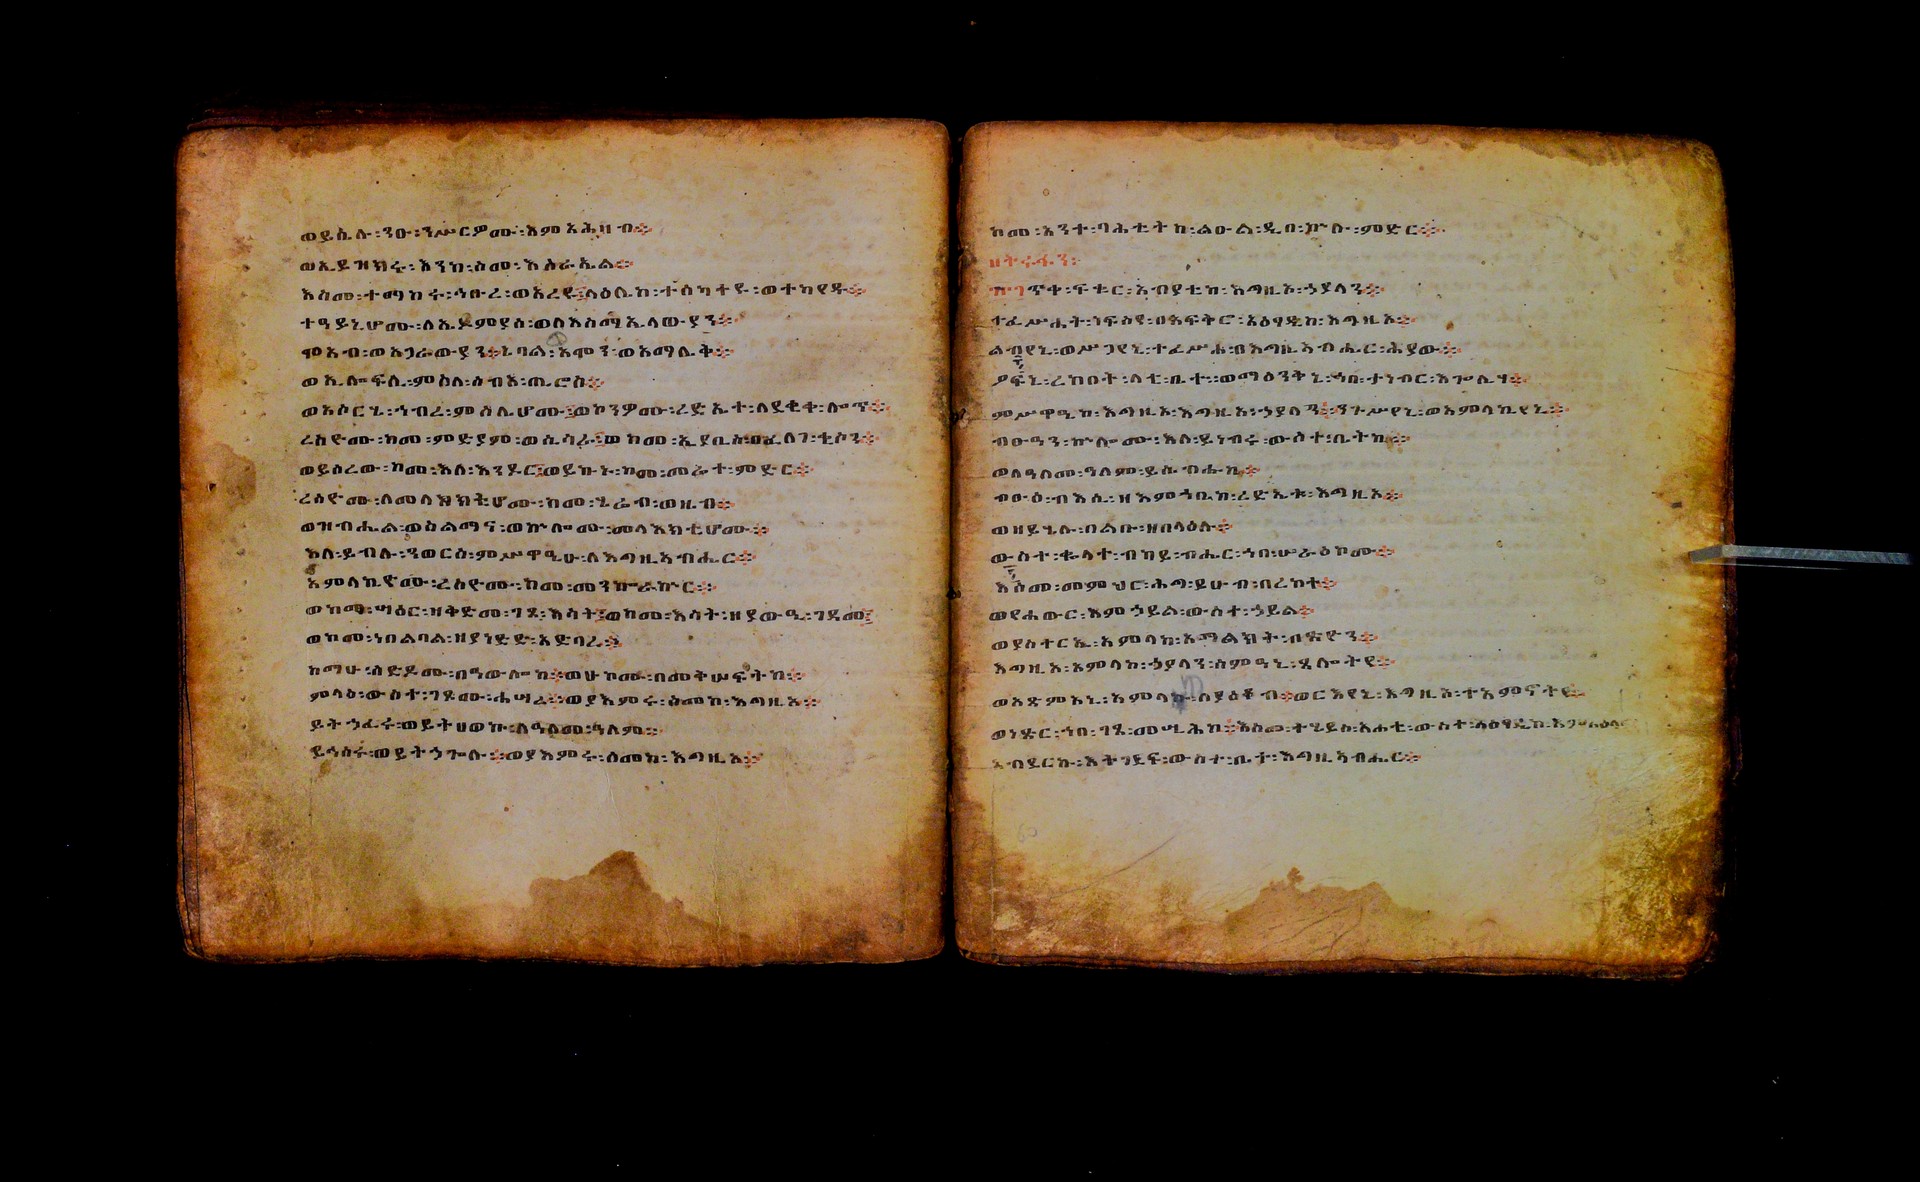 ወይቤሉ፡ንዑ፡ንሥርዎሙ፡እምአሕዛብ።
ወኢይዝክሩ፡እንከ፡ስመ፡እስራኤል።
እስመ፡ተማከሩ፡ኅቡረ፡ወአረዩ፤ላዕሌከ፡ተሰካተዩ፡ወተካየዱ።
ተዓይኒሆሙ፡ለኤዶምያስ፡ወለእስማኤላውያን።
ሞአብ፡ወአጋራውያን።ጌባል፡አሞን፡ወአማሌቅ።
ወኢሎፍሊ፡ምስለ፡ሰብአ፡ጢሮስ።
ወአሶርኒ፡ኀብረ፡ምስሌሆሙ፤ወኮንዎሙ፡ረድኤተ፡ለደቂቀ፡ሎጥ።
ረስዮሙ፡ከመ፡ምድያም፡ወሲሳራ፤ወከመ፡ኢያቢስ፡በፈለገ፡ቂሶን።
ወይሰረው፡ከመ፡እለ፡እንዶር፤ወይኩኑ፡ከመ፡መሬተ፡ምድር።
ረስዮሙ፡ለመላእክቲሆሙ፡ከመ፡ሄሬብ፡ወዜብ።
ወዝብሔል፡ወስልማና፡ወኵሎሙ፡መላእክቲሆሙ።
እለ፡ይብሉ፡ንወርስ፡ምሥዋዒሁ፡ለእግዚአብሔር።
አምላኪየሙ፡ረስዮሙ፡ከመ፡መንኰራኵር።
ወከመ፡ሣዕር፡ዘቅድመ፡ገጸ፡እሳት፤ወከመ፡እሳት፡ዘያውዒ፡ገዳመ፤
ወከመ፡ነበልባል፡ዘያነድድ፡አድባረ።
ከማሁ፡ስድዶሙ፡በዓውሎከ።ወሁኮሙ፡በመቅሠፍትከ።
ምላዕ፡ውስተ፡ገጾሙ፡ኀሣረ።ወያእምሩ፡ስመከ፡እግዚኦ።
ይትኀፈሩ፡ወይትሀወኩ፡ለዓለመ፡ዓለም።
ይኅሰሩ፡ወይትኀጐሉ።ወያእምሩ፡ስመከ፡እግዚኦ።
ከመ፡አንተ፡ባሕቲትከ፡ልዑል፡ዲበ፡ኵሉ፡ምድር።
ዘትሩፋን፡
ፍቁር፡አብያቲከ፡እግዚኦ፡ኃያላን።
ተፈሥሐት፡ነፍስየ፡በአፍቅሮ፡አዕፃዲከ፡እግዚኦ።
ልብየኒ፡ወሥጋየኒ፡ተፈሥሐ፡በእግዚአብሔር፡ሕያው።
ዖፍኒ፡ረከበት፡ላቲ፡ቤተ፡ወማዕነቅኒ፡ኀበ፡ታነብር፡እጐሊሃ።
ምሥዋዒከ፡እግዚኦ፡እግዚአ፡ኃያላን፤ንጉሥየኒ፡ወአምላኪየኒ።
ብፁዓን፡ኵሎሙ፡እለ፡ይነብሩ፡ውስተ፡ቤትከ።
ወለዓለመ፡ዓለም፡ይሴብሑከ።
ብፁዕ፡ብእሲ፡ዘእምኀቤከ፡ረድኤቱ፡እግዚኦ።
ወዘይሄሉ፡በልቡ፡ዘበላዕሉ።
ውስተ፡ቈላተ፡ብካይ፡ብሔር፡ኀበ፡ሠራዕኮሙ።
እስመ፡መምህር፡ሕግ፡ይሁብ፡በረከተ።
ወየሐውር፡እምኃይል፡ውስተ፡ኃይል።
ወያስተርኢ፡አምላከ፡አማልክት፡በጽዮን።
እግዚኦ፡አምላከ፡ኃያላን፡ስምዓኒ፡ጸሎትየ።
ወአጽምአኒ፡አምላኩ፡ለያዕቆብ።ወርእየኒ፡እግዚኦ፡ተአምኖትየ።
ወነጽር፡ኀበ፡ገጸ፡መሢሕከ።እስመ፡ትሄይስ፡አሐቲ፡ውስተ፡አዕፃዲከ፡
አብደርኩ፡እትገደፍ፡ውስተ፡ቤተ፡እግዚአብሔር።